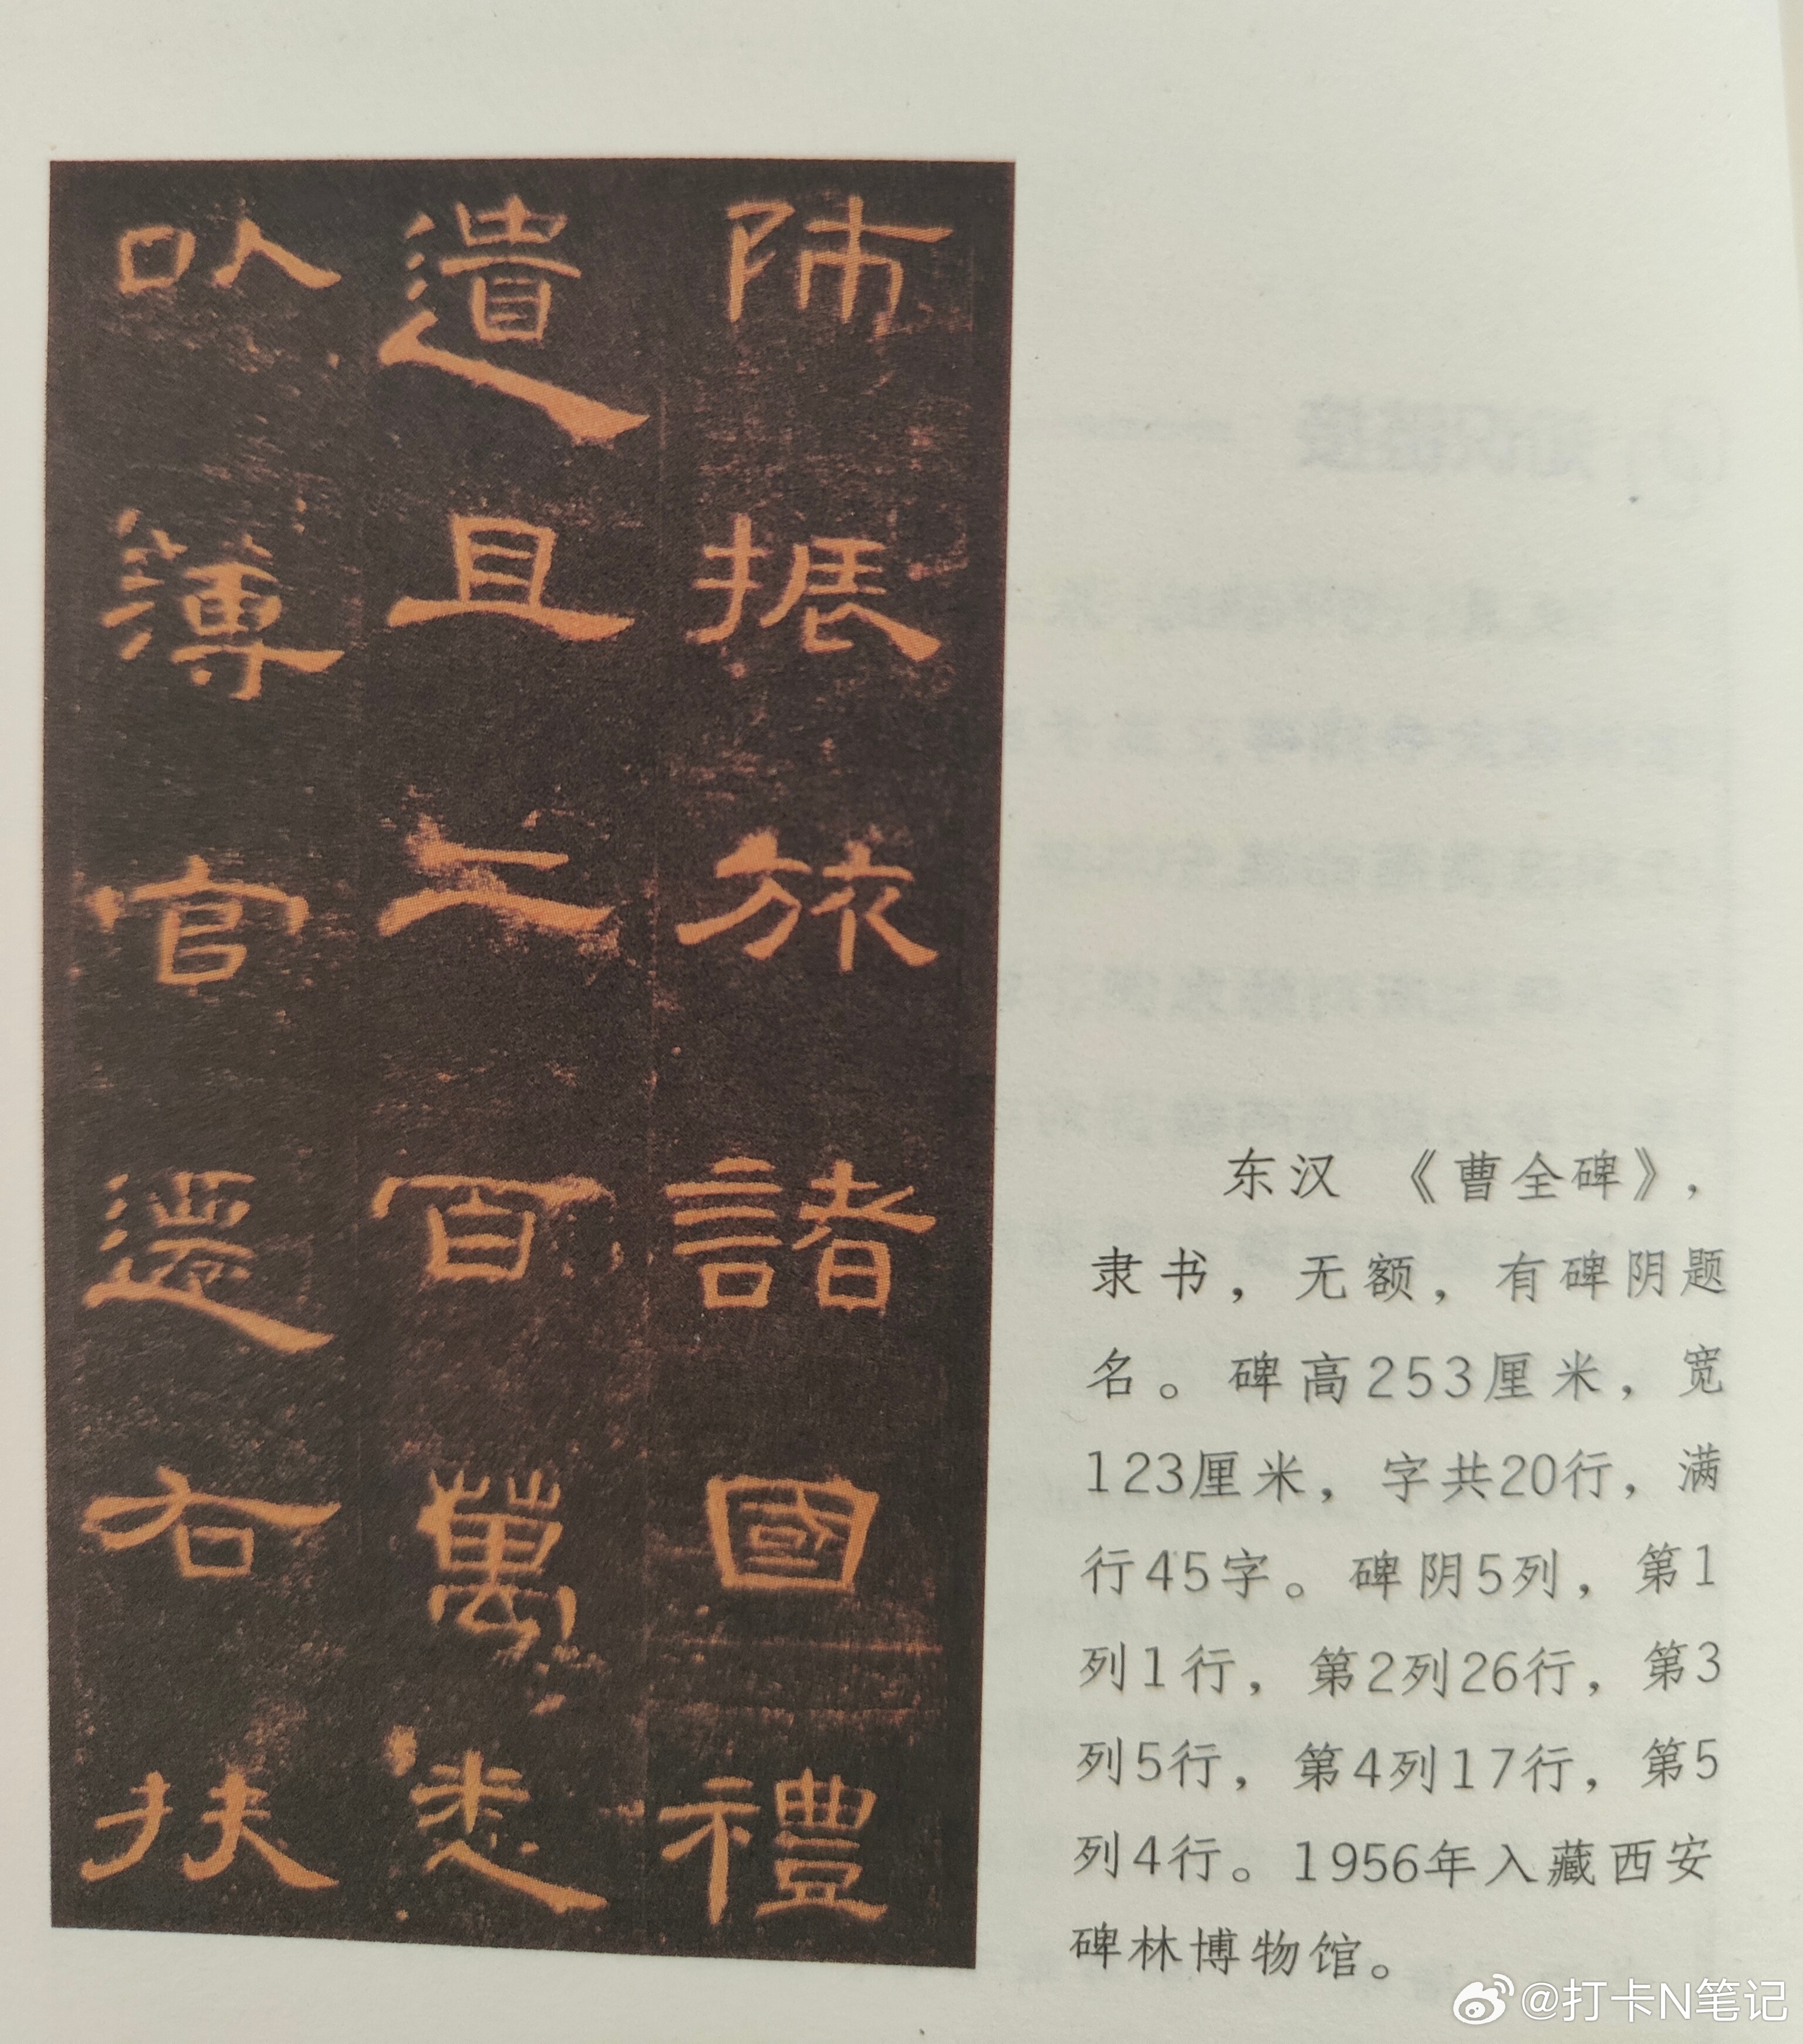 师振旅諸國禮
遺且二百萬悉
以薄官還右扶
东汉 《曹全碑》，
隶书，无额，有碑阴题
名。碑高253厘米，宽
123厘米，字共20行，满
行45字。碑阴5列，第1
列1行，第2列26行，第3
列5行，第4列17行，第5
列4行。1956年入藏西安
碑林博物馆。
@打卡N笔记